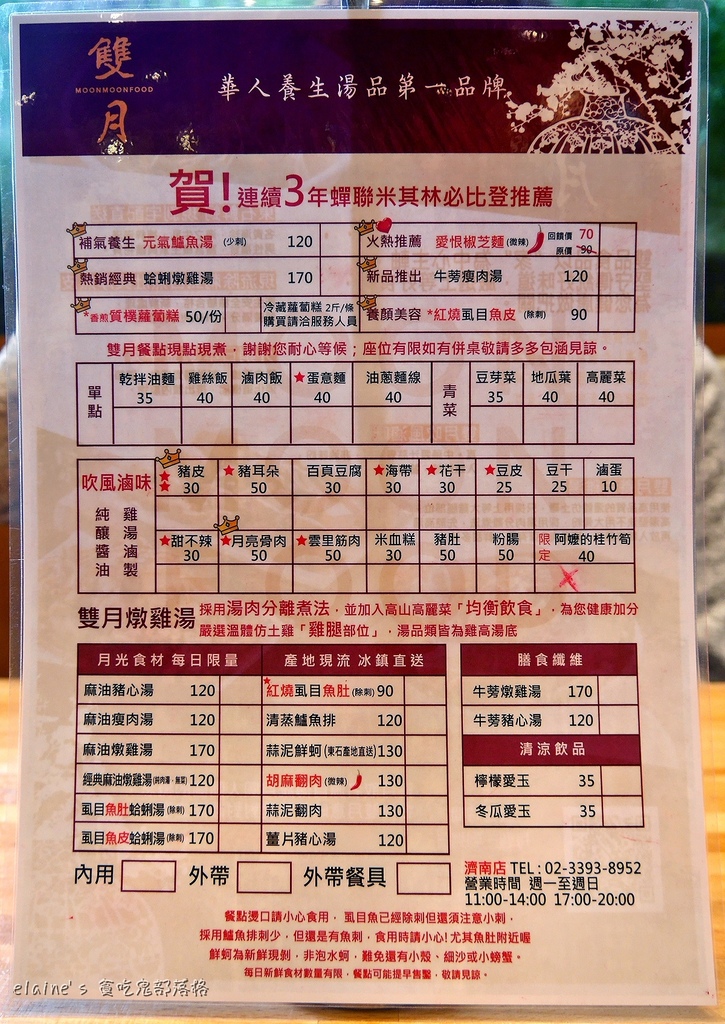 雙月
MOONMOONFOOD
華人養生湯品第一品牌
賀!連續3年蟬聯米其林必比登推薦
補氣養生 元氣鱸魚湯 (少刺) 120
火熱推薦 愛恨椒芝麵(微辣) 回饋價 70 原價 90
熱銷經典 蛤蜊燉雞湯 170
新品推出 牛蒡瘦肉湯 120
*香煎質樸蘿蔔糕 50/份
冷藏蘿蔔糕 2斤/條
購買請洽服務人員
養顏美容 *紅燒虱目魚皮 (除刺) 90
雙月餐點現點現煮，謝謝您耐心等候；座位有限如有併桌敬請多多包涵見諒。
單點
乾拌油麵 35
雞絲飯 40
滷肉飯 40
★蛋意麵 40
油蔥麵線 40
青菜
豆芽菜 35
地瓜葉 40
高麗菜 40
吹風滷味
純釀醬油
雞湯滷製
★★豬皮 30
★豬耳朵 50
百頁豆腐 30
★海帶 30
★花干 30
★豆皮 25
豆干 25
滷蛋 10
★甜不辣 30
★月亮骨肉 50
★雲里筋肉 50
米血糕 30
豬肚 50
粉腸 50
限定 阿嬤的桂竹筍 40
雙月燉雞湯 採用湯肉分離煮法，並加入高山高麗菜「均衡飲食」，為您健康加分
嚴選溫體仿土雞「雞腿部位」，湯品類皆為雞高湯底
月光食材 每日限量
麻油豬心湯 120
麻油瘦肉湯 120
麻油燉雞湯 170
經典麻油燉雞湯(純肉湯，無菜) 120
虱目魚肚蛤蜊湯(除刺) 170
虱目魚皮蛤蜊湯(除刺) 170
產地現流 冰鎮直送
★紅燒虱目魚肚(除刺) 90
清蒸鱸魚排 120
蒜泥鮮蚵(東石產地直送) 130
胡麻翻肉(微辣) 130
蒜泥翻肉 130
薑片豬心湯 120
膳食纖維
牛蒡燉雞湯 170
牛蒡豬心湯 120
清涼飲品
檸檬愛玉 35
冬瓜愛玉 35
內用 外帶 外帶餐具
濟南店 TEL:02-3393-8952
營業時間 週一至週日
11:00-14:00 17:00-20:00
餐點燙口請小心食用，虱目魚已經除刺但還須注意小刺，
採用鱸魚排刺少，但還是有魚刺，食用時請小心!尤其魚肚附近喔
鮮蚵為新鮮現剝，非泡水蚵，難免還有小殼、細沙或小螃蟹。
每日新鮮食材數量有限，餐點可能提早售罄，敬請見諒。
elaine's 貪吃鬼部落格